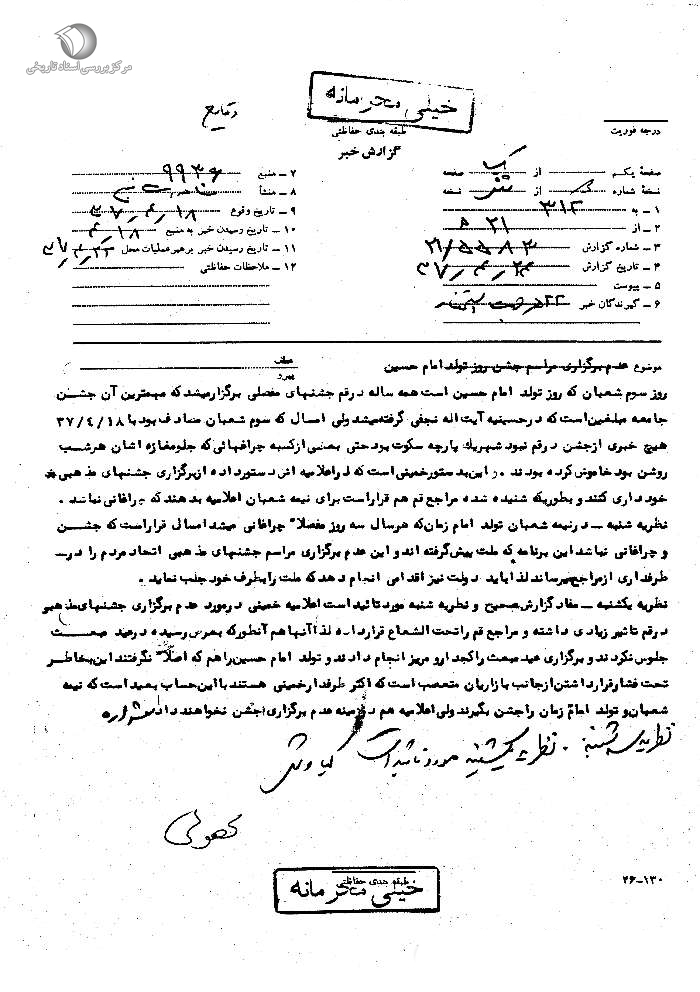 مرکز بررسی اسناد تاریخی
خیلی محرمانه
وقایع
درجه فوریت
طبقه بندی حفاظتی
گزارش خبر
صفحهٔ یکم از یک صفحه
نسخهٔ شماره از نسخه
۱ ـ به ۳۱۲
۲ ـ از ۲۱ ه
۳ ـ شماره گزارش
۴ ـ تاریخ گزارش
۵ ـ پیوست
۶ ـ گیرندگان خبر
۷ ـ منبع ۹۹۳۶
۸ ـ منشأ
۹ ـ تاریخ وقوع ۳۷٫۴٫۱۸
۱۰ ـ تاریخ رسیدن خبر به منبع ۴٫۱۸
۱۱ ـ تاریخ رسیدن خبر برهبر عملیات محل
۱۲ ـ ملاحظات حفاظتی
موضوع عدم برگزاری مراسم جشن روز تولد امام حسین
عطف
پیرو
روز سوم شعبان که روز تولد امام حسین است همه ساله در قم جشنهای مفصلی برگزار میشد که مهمترین آن جشن
جامعه مبلغین است که در حسینیه آیت اله نجفی گرفته میشد ولی امسال که سوم شعبان مصادف بود با ۳۷/۴/۱۸
هیچ خبری از جشن در قم نبود شهر یک پارچه سکوت بود حتی بعضی از کسبه چراغهائی که جلو مغازه اشان هر شب
روشن بود خاموش کرده بودند . و این به دستور خمینی است که در اعلامیه اش دستور داده از برگزاری جشنهای مذهبی
خود داری کنند و بطوریکه شنیده شده مراجع قم هم قرار است برای نیمه شعبان اعلامیه بدهند که چراغانی نباشد .
نظریه شنبه ـ در نیمه شعبان تولد امام زمان که هر سال سه روز مفصلا" چراغانی میشد امسال قرار است که جشن
و چراغانی نباشد این برنامه که ملت پیش گرفته اند و این عدم برگزاری مراسم جشنهای مذهبی اتحاد مردم را در ـ
طرفداری از مراجع میرساند لذا باید دولت نیز اقدامی انجام دهد که ملت را بطرف خود جلب نماید .
نظریه یکشنبه ـ مفاد گزارش صحیح و نظریه شنبه مورد تائید است اعلامیه خمینی در مورد عدم برگزاری جشنهای مذهبی
در قم تاثیر زیادی داشته و مراجع قم را تحت الشعاع قرار داده لذا آنها هم آنطور که بعرض رسیده در عید مبعث
جلوس نکردند و برگزاری عید مبعث را کجدار و مریز انجام دادند و تولد امام حسین را هم که اصلا" نگرفتند این بخاطر
تحت فشار قرار داشتن از جانب بازاریان متعصب است که اکثر طرفدار خمینی هستند با این حساب بعید است که نیمه
شعبان و تولد امام زمان را جشن بگیرند ولی اعلامیه هم در زمینه عدم برگزاری جشن نخواهند داد
نظریه سه شنبه . نظریه یکشنبه مورد تائید است
کهولی
۲۶-۱۳۰
طبقه بندی حفاظتی
خیلی محرمانه